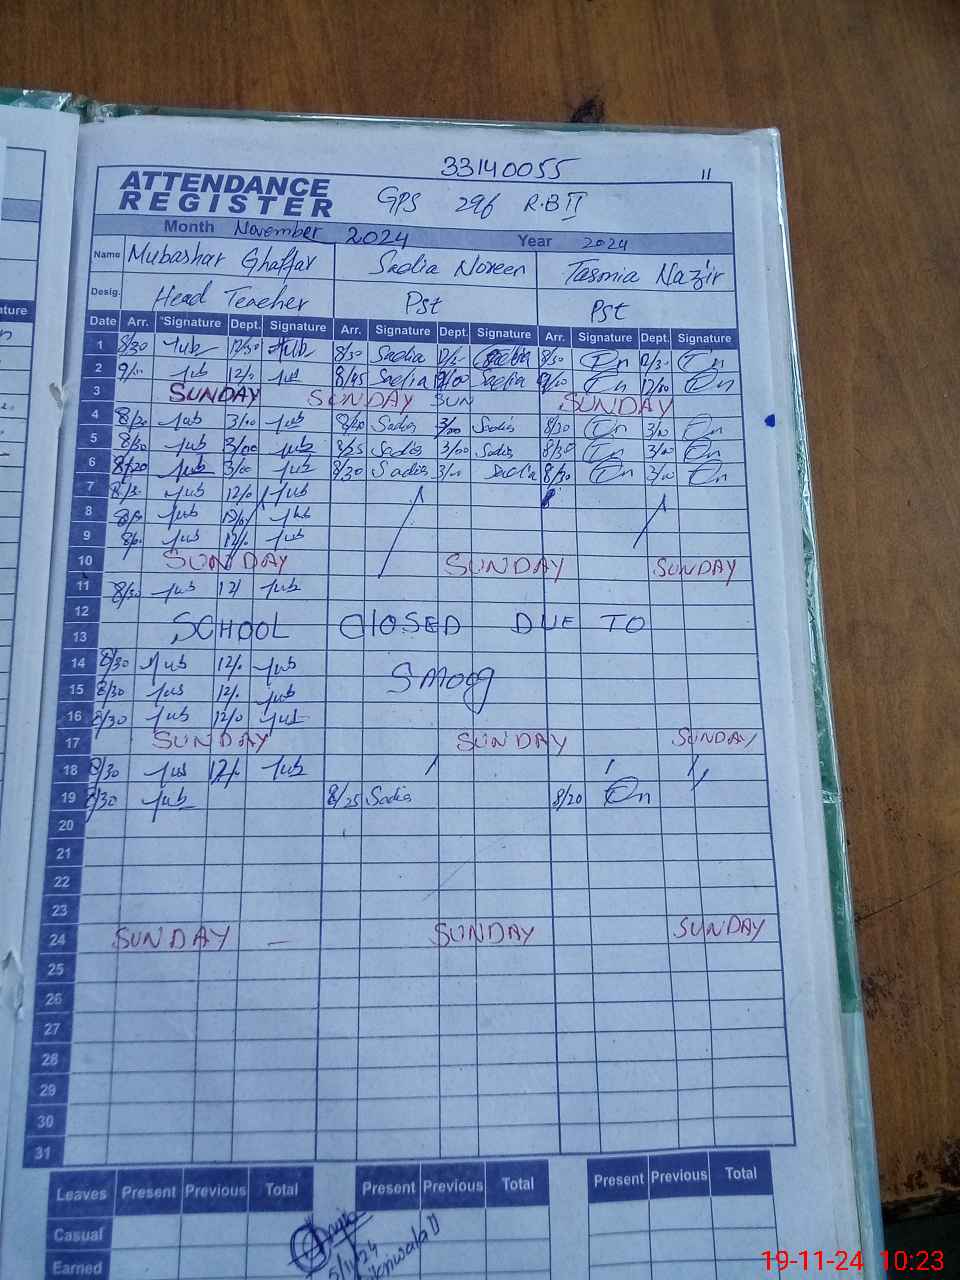 33140055
11
ATTENDANCE REGISTER
GPS 296 R.B II
Month November 2024 Year 2024
Name Mubashar Ghaffar Sadia Noreen Tasmia Nazir
Desig. Head Teacher Pst Pst
Date Arr. Signature Dept. Signature Arr. Signature Dept. Signature Arr. Signature Dept. Signature
1 8/30 Mub 12/30 Mub 8/30 Sadia Sadia 8/30 12/30
2 Mub Mub 8/45 Sadia 12/00 Sadia
3 SUNDAY SUNDAY SUN SUNDAY
4 Mub 3/00 Mub 8/20 Sadia 3/00 Sadia 8/20 3/00
5 8/30 Mub 3/00 Mub 8/25 Sadia 3/00 Sadia 8/30 3/00
6 8/20 Mub 3/00 Mub 8/30 Sadia 3/00 Sadia 8/30 3/00
7 Mub 12/0 Mub
8 Mub Mub
9 Mub Mub
10 SUNDAY SUNDAY SUNDAY
11 8/30 Mub 12/ Mub
12
13 SCHOOL ClOSED DUE TO
14 8/30 Mub 12/0 Mub Smoog
15 8/30 Mub 12/0 Mub
16 8/30 Mub 12/0 Mub
17 SUNDAY SUNDAY SUNDAY
18 8/30 Mub 12/0 Mub
19 8/30 Mub 8/25 Sadia 8/20
20
21
22
23
24 SUNDAY SUNDAY SUNDAY
25
26
27
28
29
30
31
Leaves Present Previous Total Present Previous Total Present Previous Total
Casual
Earned
19-11-24 10:23